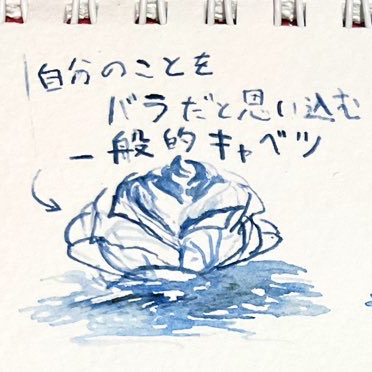 自分のことを
バラだと思い込む
一般的キャベツ